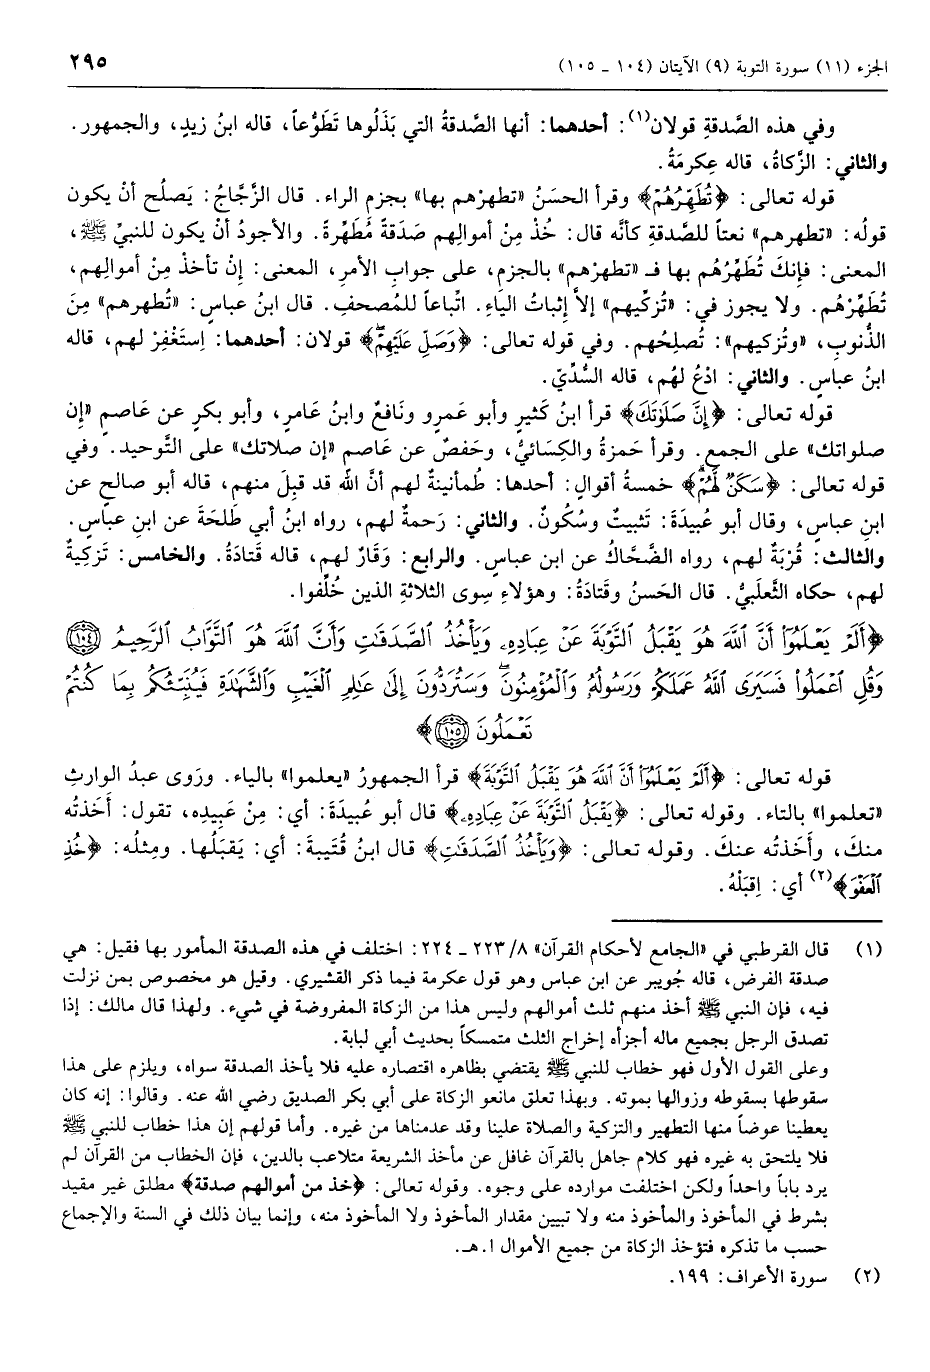 الجزء (١١) سورة التوبة (٩) الآيتان (١٠٤ ـ ١٠٥)
٢٩٥
وفي هذه الصَّدقةِ قولان(١): أحدهما: أنها الصَّدقةُ التي بَذَلُوها تَطَوُّعاً، قاله ابنُ زيدٍ، والجمهور.
والثاني: الزَّكاةُ، قاله عِكرمَةُ.
قوله تعالى: ﴿تُطَهِّرُهُمْ﴾ وقرأ الحسَنُ «تطهرْهم بها» بجزم الراء. قال الزَّجَّاجُ: يَصلُح أنْ يكون
قولُه: «تطهرهم» نعتاً للصَّدقةِ كأنَّه قال: خُذْ مِنْ أموالِهم صَدَقةً مُطَهِّرةً. والأجودُ أن يكون للنبيِّ ﷺ،
المعنى: فإنكَ تُطَهِّرُهُم بها فـ «تطهرْهم» بالجزم، على جوابِ الأمرِ، المعنى: إنْ تأخذْ مِنْ أموالِهم،
تُطَهِّرْهُم. ولا يجوز في: «تُزكِّيهم» إلاَّ إثباتُ الياءِ. اتِّباعاً للمُصحفِ. قال ابنُ عباس: «تُطهرهم» مِنَ
الذُّنوبِ، «وتُزكيهم»: تُصلِحُهم. وفي قوله تعالى: ﴿وَصَلِّ عَلَيْهِمْ﴾ قولان: أحدهما: اِستَغْفِرْ لهم، قاله
ابنُ عباسٍ. والثاني: ادْعُ لهُم، قاله السُّدِّيّ.
قوله تعالى: ﴿إِنَّ صَلَوٰتَكَ﴾ قرأ ابنُ كَثيرٍ وأبو عَمرٍو ونَافعٌ وابنُ عَامرٍ، وأبو بكرٍ عن عَاصمٍ «إن
صلواتك» على الجمعِ. وقرأ حَمزةُ والكِسَائيُّ، وحَفصٌ عن عَاصم «إن صلاتك» على التَّوحيد. وفي
قوله تعالى: ﴿سَكَنٌ لَهُمْ﴾ خمسةُ أقوالٍ: أحدها: طُمأنينةٌ لهم أنَّ الله قد قبِلَ منهم، قاله أبو صالحٍ عن
ابنِ عباسٍ، وقال أبو عُبيدَةَ: تَثبيتٌ وسُكُونٌ. والثاني: رَحمةٌ لهم، رواه ابنُ أبي طَلحَةَ عن ابنِ عباسٍ.
والثالث: قُرْبَةٌ لهم، رواه الضَّحَّاكُ عن ابن عباسٍ. والرابع: وَقَارٌ لهم، قاله قَتادَةُ. والخامس: تَزكيةٌ
لهم، حكاه الثَّعلَبيُّ. قال الحَسنُ وقَتادَةُ: وهؤلاءِ سِوى الثلاثةِ الذين خُلِّفوا.
﴿أَلَمْ يَعْلَمُوٓا۟ أَنَّ ٱللَّهَ هُوَ يَقْبَلُ ٱلتَّوْبَةَ عَنْ عِبَادِهِۦ وَيَأْخُذُ ٱلصَّدَقَٰتِ وَأَنَّ ٱللَّهَ هُوَ ٱلتَّوَّابُ ٱلرَّحِيمُ ١٠٤
وَقُلِ ٱعْمَلُوا۟ فَسَيَرَى ٱللَّهُ عَمَلَكُمْ وَرَسُولُهُۥ وَٱلْمُؤْمِنُونَ ۖ وَسَتُرَدُّونَ إِلَىٰ عَٰلِمِ ٱلْغَيْبِ وَٱلشَّهَٰدَةِ فَيُنَبِّئُكُم بِمَا كُنتُمْ
تَعْمَلُونَ ١٠٥﴾
قوله تعالى: ﴿أَلَمْ يَعْلَمُوٓا۟ أَنَّ ٱللَّهَ هُوَ يَقْبَلُ ٱلتَّوْبَةَ﴾ قرأ الجمهورُ «يعلموا» بالياء. ورَوى عبدُ الوارثِ
«تعلموا» بالتاء. وقوله تعالى: ﴿يَقْبَلُ ٱلتَّوْبَةَ عَنْ عِبَادِهِۦ﴾ قال أبو عُبيدَةَ: أي: مِنْ عَبِيدِه، تقول: أَخَذتُه
منكَ، وأَخَذتُه عنكَ. وقوله تعالى: ﴿وَيَأْخُذُ ٱلصَّدَقَٰتِ﴾ قال ابنُ قُتَيبةَ: أي: يَقبَلُها. ومِثلُه: ﴿خُذِ
ٱلْعَفْوَ﴾(٢) أي: اِقبَلْهُ.
(١) قال القرطبي في «الجامع لأحكام القرآن» ٨/ ٢٢٣ ـ ٢٢٤: اختلف في هذه الصدقة المأمور بها فقيل: هي
صدقة الفرض، قاله جُويبر عن ابن عباس وهو قول عكرمة فيما ذكر القشيري. وقيل هو مخصوص بمن نزلت
فيه، فإن النبي ﷺ أخذ منهم ثلث أموالهم وليس هذا من الزكاة المفروضة في شيء. ولهذا قال مالك: إذا
تصدق الرجل بجميع ماله أجزأه إخراج الثلث متمسكاً بحديث أبي لبابة.
وعلى القول الأول فهو خطاب للنبي ﷺ يقتضي بظاهره اقتصاره عليه فلا يأخذ الصدقة سواه، ويلزم على هذا
سقوطها بسقوطه وزوالها بموته. وبهذا تعلق مانعو الزكاة على أبي بكر الصديق رضي الله عنه. وقالوا: إنه كان
يعطينا عوضاً منها التطهير والتزكية والصلاة علينا وقد عدمناها من غيره. وأما قولهم إن هذا خطاب للنبي ﷺ
فلا يلتحق به غيره فهو كلام جاهل بالقرآن غافل عن مأخذ الشريعة متلاعب بالدين، فإن الخطاب من القرآن لم
يرد باباً واحداً ولكن اختلفت موارده على وجوه. وقوله تعالى: ﴿خذ من أموالهم صدقة﴾ مطلق غير مقيد
بشرط في المأخوذ والمأخوذ منه ولا تبيين مقدار المأخوذ ولا المأخوذ منه، وإنما بيان ذلك في السنة والإجماع
حسب ما تذكره فتؤخذ الزكاة من جميع الأموال ا.هـ.
(٢) سورة الأعراف: ١٩٩.